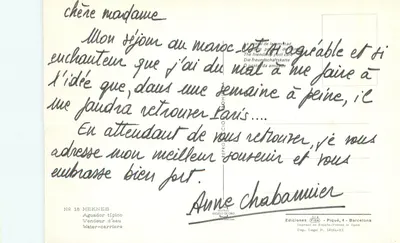 chère madame
Mon séjour au maroc est si agréable et si
enchanteur que j'ai du mal à me faire à
l'idée que, dans une semaine à peine, il
me faudra retrouver Paris....
En attendant de vous retrouver, je vous
adresse mon meilleur souvenir et vous
embrasse bien fort.
Anne Chabannier
MEKNES
Aguador típico
Vendeur d'eau
Water-carriers
Ediciones
Barcelona